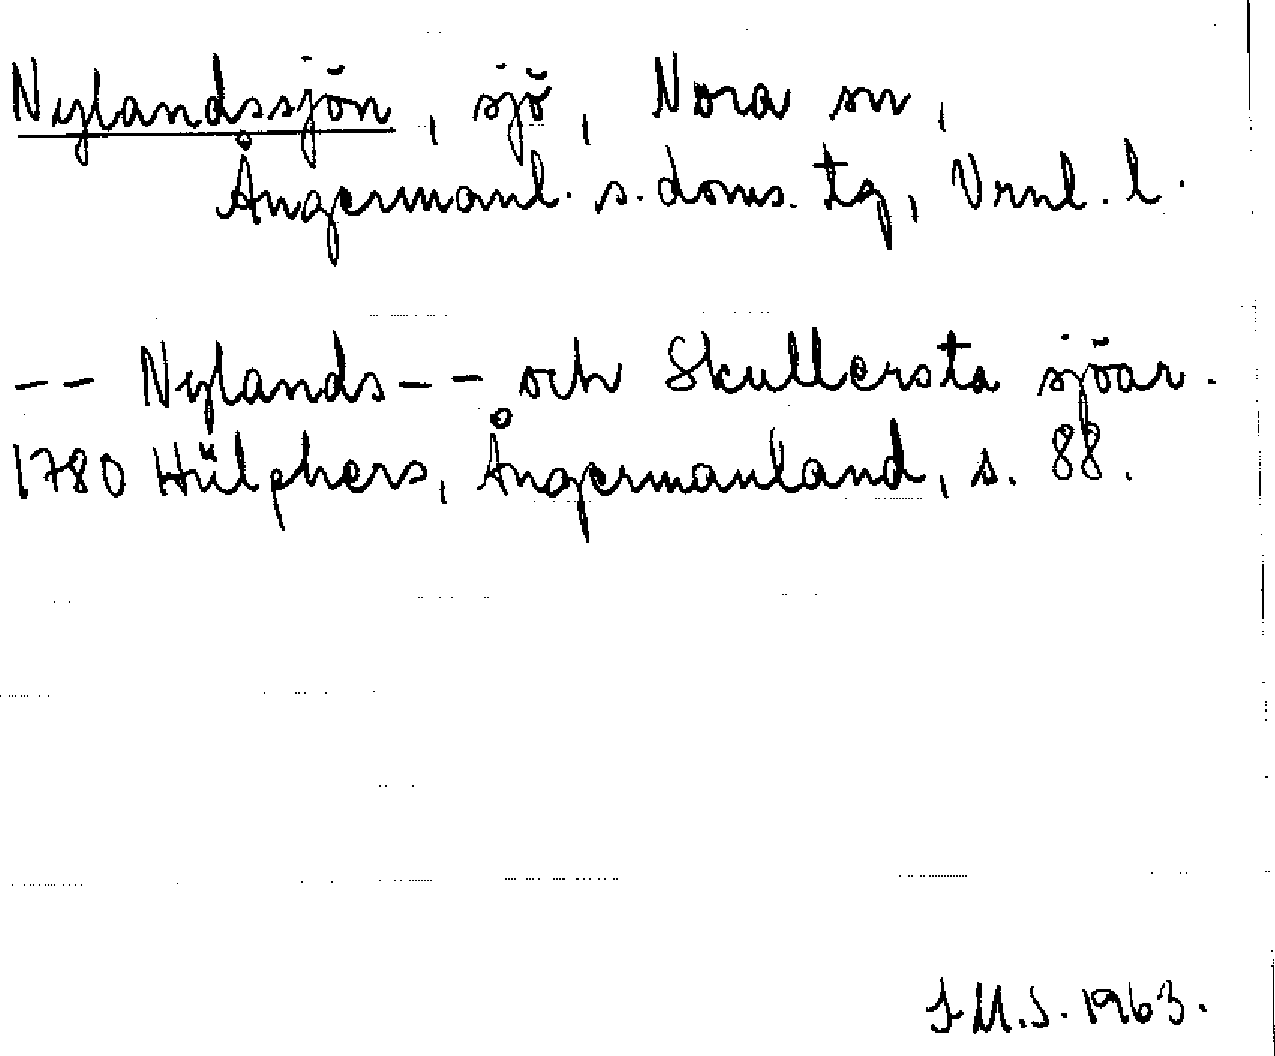 Nylandssjön, sjö, Nora sn,
Ångermanl. s. doms. tg, Vrnl. l.
-- Nylands-- och Skullersta sjöar.
1780 Hülphers, Ångermanland, s. 88.
I M.S. 1963.